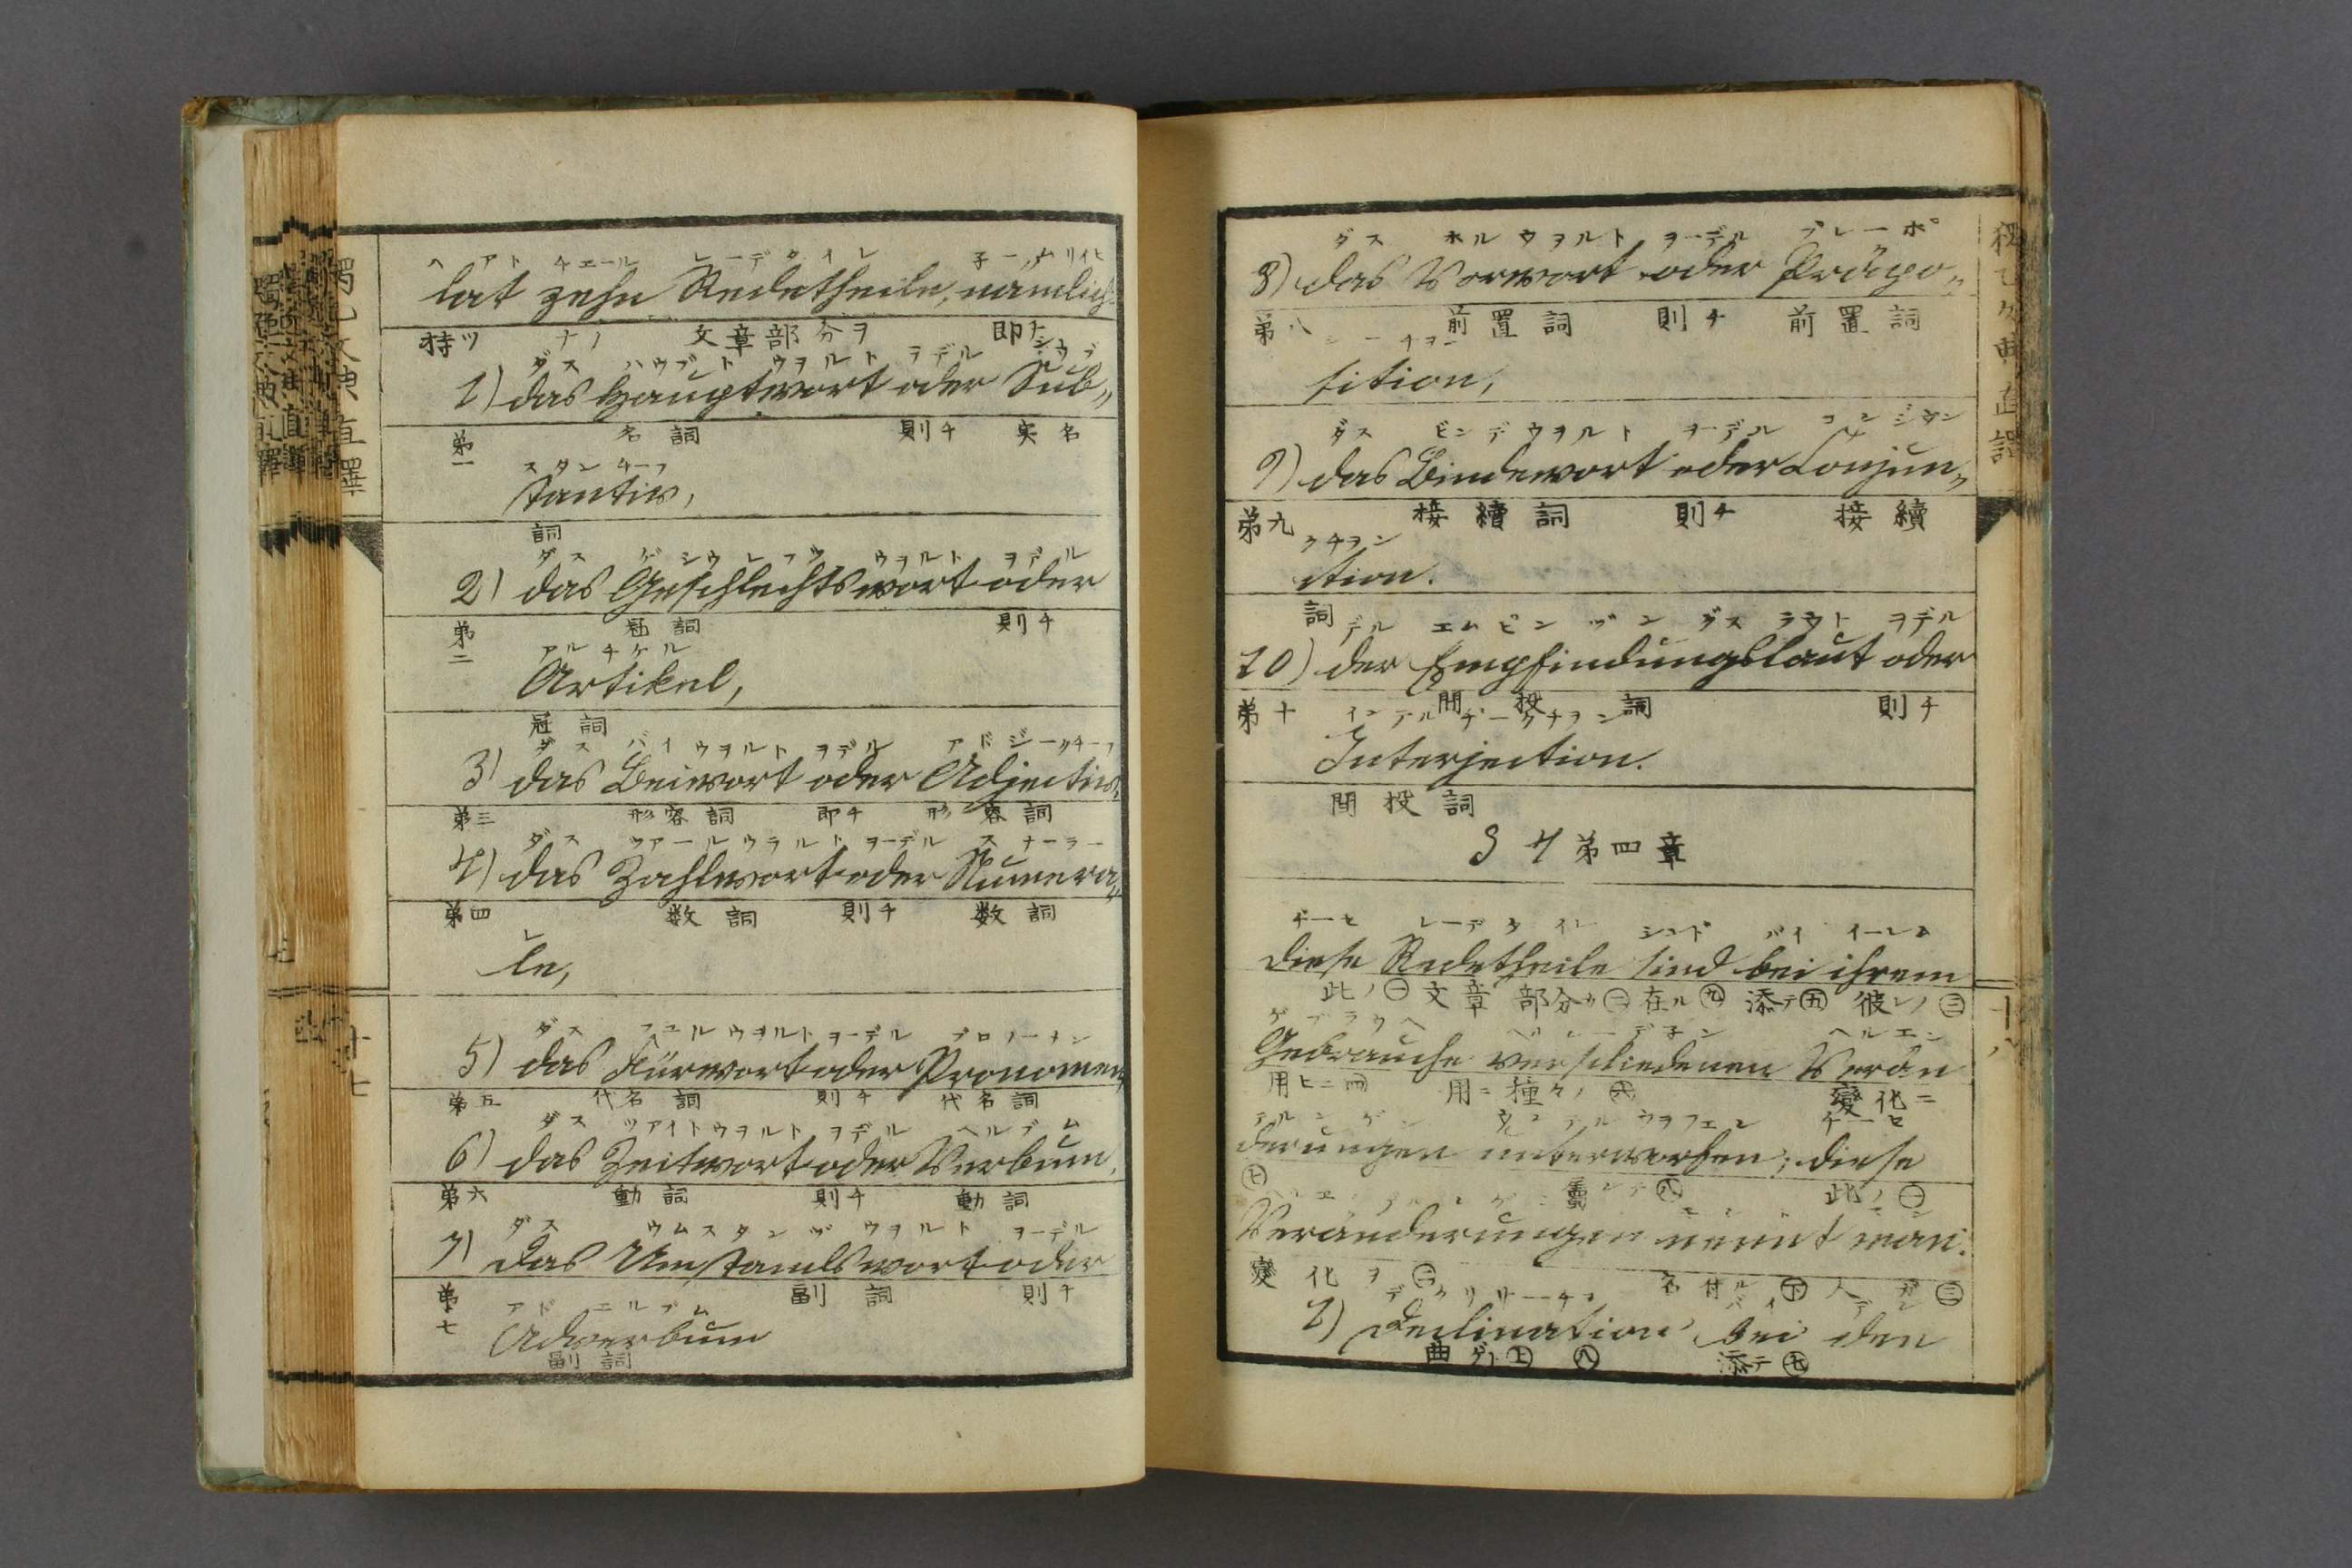 ヘアト チエール レーデタイレ 子ームリイヒ
hat zehn Redetheile, nämlich
持ツ 十ノ 文章部分ヲ 即チ
ダス ハウプトウヲルト ヲデル シウブ
1) das Hauptwort oder Sub„
第一 名詞 則チ 実名
スタンチーフ
stantiv,
詞
ダス ゲシウレフツ ウヲルト ヲデル
2) das Geschlechtswort oder
第二 冠詞 則チ
アルチケル
Artikel,
冠詞
ダス バイウヲルト ヲデル アドジークチーフ
3) das Beiwort oder Adjectiv,
第三 形容詞 即チ 形容詞
ダス ツアールウラルト ヲーデル
4) das Zahlwort oder Numera„
第四 数詞 則チ 数詞
レ
le,
ダス フユルウヲルト ヲーデル プロノーメン
5) das Fürwort oder Pronomen,
第五 代名詞 則チ 代名詞
ダス ツアイトウヲルト ヲデル ヘルブム
6) das Zeitwort oder Verbum,
第六 動詞 則チ 動詞
ダス ウムスタンヅ ウヲルト ヲーデル
7) das Umstandswort oder
第七 副詞 則チ
アドエルブム
Adverbum
副詞
獨乙文典直譯
十七
ダス ホルウヲルト ヲーデル プレーポ
8) das Vorwort oder Präpo„
第八 前置詞 則チ 前置詞
シーチヲン
sition,
ダス ビンデウヲルト ヲーデル コンジウン
9) das Bindewort oder Conjun„
第九 接續詞 則チ 接續
クチヲン
ction.
詞
デル エムピンヅンダスラウト ヲデル
10) der Empfindungslaut oder
第十 間投詞 則チ
インテルヂークチヲン
Interjection.
間投詞
§ 4 第四章
ヂーセ レーデタイレ シンド バイ イーレム
Diese Redetheile sind bei ihrem
此ノ㊀ 文章部分ガ㊁ 在ル㊈ 添テ㊄ 彼レノ㊂
ゲブラウヘ ヘルエン
Gebrauche verschiedenen Verän
用ヒニ㊃ 用ニ種々ノ㊅ 變化ニ
デルンゲン ウンテルウヲフエン ヂーセ
derungen unterworfen; diese
㊆ 屬シテ㊇ 此ノ㊀
Veränderungen nennt man.
變化ヲ㊁ 名付ル㊦ 人ガ㊂
バイ デン
1) Declination bei den
曲ゲト㊤ ㊇ 添テ㊆
十八